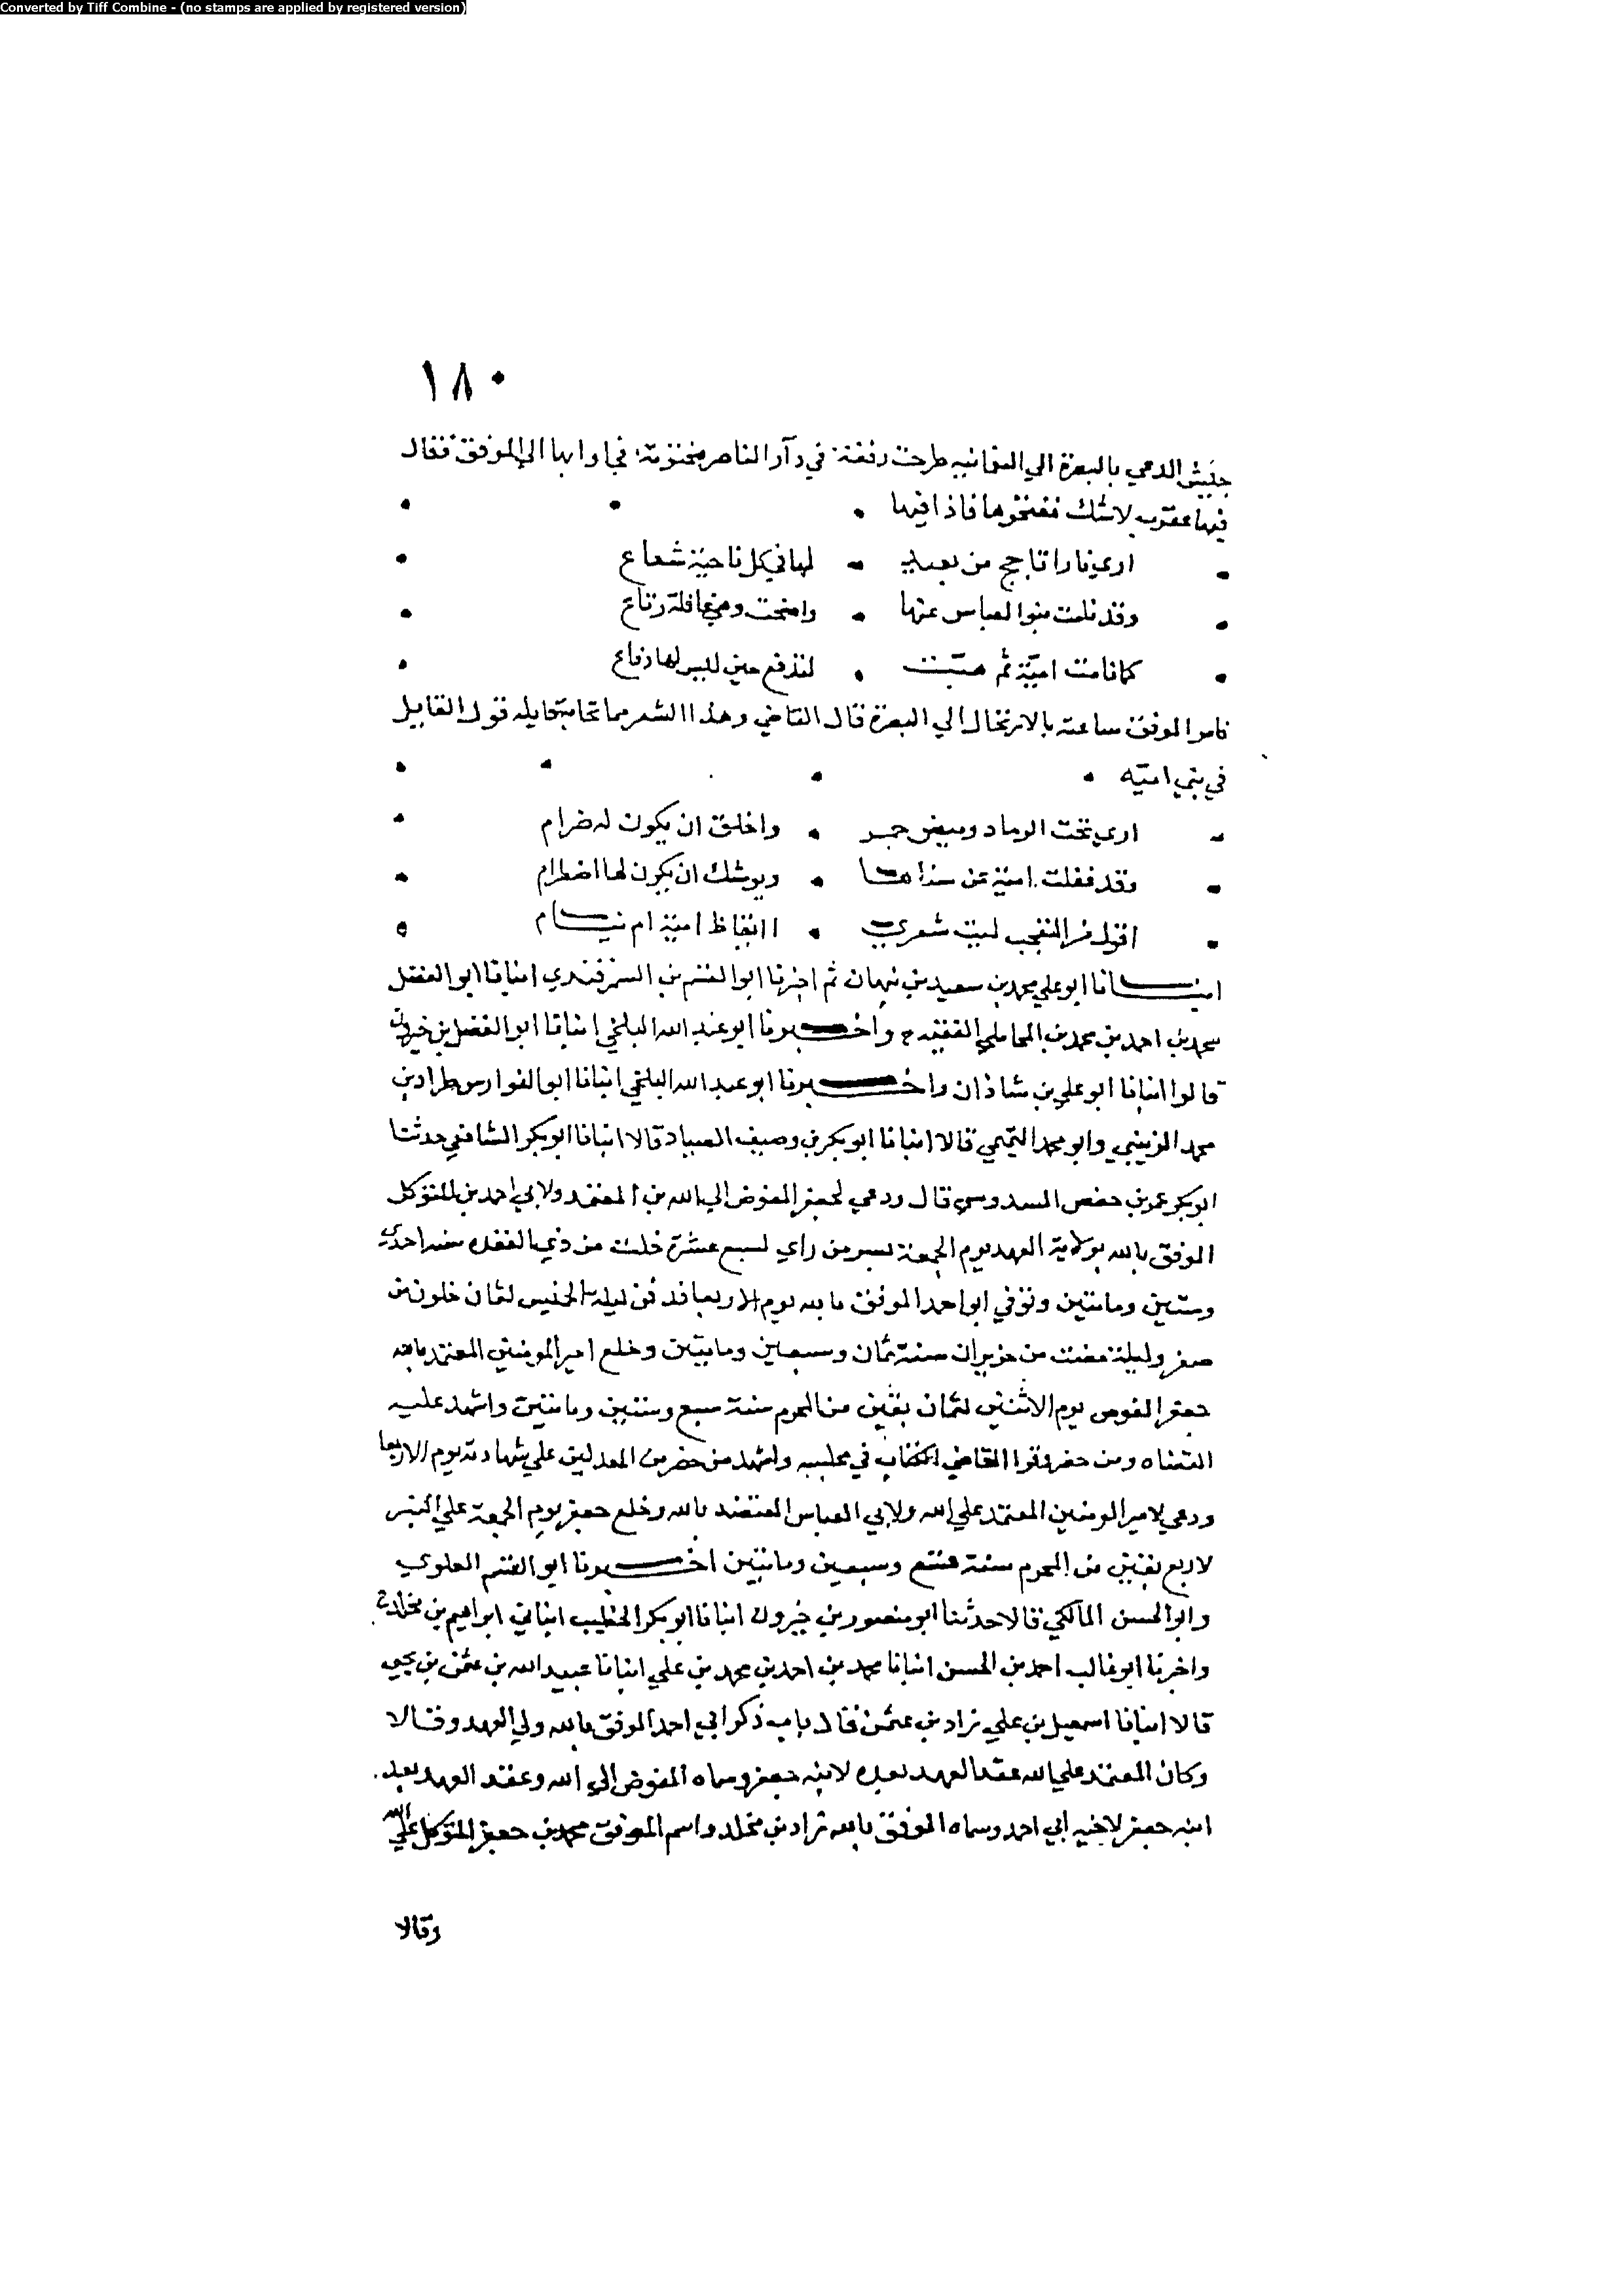 Converted by Tiff Combine - (no stamps are applied by registered version)
١٨٠
جيش الدعي بالبصرة الي النعمانيه طرحت رقعة في دار الناصر مختومة فجاوا بها الي الموفق فقال
فيها عقرب لاشك ففتحوها فاذا فيها
اري نارا تاجج من بعيد لها في كل ناحية شعاع
وقد نامت بنوا العباس عنها واضحت وهي غافلة رتاع
كما نامت امية ثم هبت لتدفع حين ليس لها دفاع
فامر الموفق ساعته بالارتحال الي البصرة قال القاضي وهذا الشعر مما قول القايل
في بني اميه
اري تحت الرماد وميض جمر واخلق ان يكون له ضرام
وقد غفلت امية عن سناها ويوشك ان يكون لها اضطرام
اقول من التعجب ليت شعري اايقاظ امية ام نيام
انبانا ابو علي محمد بن سعيد بن نبهان ثم اخبرنا ابو القسم بن السمرقندي انبانا ابو الفضل
محمد بن احمد بن محمد بن المحاملي الفقيه ح واخبرنا ابو عبد الله البلخي انبانا ابو الفضل بن خيرون
قالوا انبانا ابو علي بن شاذان واخبرنا ابو عبد الله البلخي انبانا ابو الفوارس طراد بن
محمد الزينبي وابو محمد التميمي قالا انبانا ابو بكر بن وصيف الصياد قالا انبانا ابو بكر الشافعي حدثنا
ابو بكر عمر بن حفص السدوسي قال ودعي لجعفر المفوض الي الله بن المعتمد ولابي احمد بن المتوكل
الموفق بالله بولاية العهد يوم الجمعة بسر من راي لسبع عشرة خلت من ذي القعده سنه احدي
وستين ومايتين وتوفي ابو احمد الموفق بالله يوم الاربعا فدفن ليلة الخميس لثمان خلون من
صفر ولليلة مضت من حزيران سنة ثمان وسبعين ومايتين وخلع امير المومنين المعتمد بالله
جعفر المفوض يوم الاثنين لثمان بقين من المحرم سنة سبع وستين ومايتين واشهد عليه
القضاه ومن حضر وقرا القاضي الكتاب في مجلسه واشهد من حضر من المعدلين علي شهادته يوم الاربعا
ودعي لامير المومنين المعتمد علي الله ولابي العباس المعتضد بالله وخلع جعفر يوم الجمعة علي المنبر
لاربع بقين من المحرم سنة تسع وسبعين ومايتين اخبرنا ابو القسم العلوي
وابو الحسن المالكي قالا حدثنا ابو منصور بن خيرون انبانا ابو بكر الخطيب انباني ابراهيم بن مخلد ح
واخبرنا ابو غالب احمد بن الحسن انبانا محمد بن احمد بن محمد بن علي انبانا عبيد الله بن عثمن بن يحيي
قالا انبانا اسمعيل بن علي زاد بن عثمن قال باب ذكر ابي احمد الموفق بالله ولي العهد وقالا
وكان المعتمد علي الله عقد العهد بعده لابنه جعفر وسماه المفوض الي الله وعقد العهد بعد
ابنه جعفر لاخيه ابي احمد وسماه الموفق بالله زاد بن مخلد واسم الموفق محمد بن جعفر المتوكل علي الله
وقالا